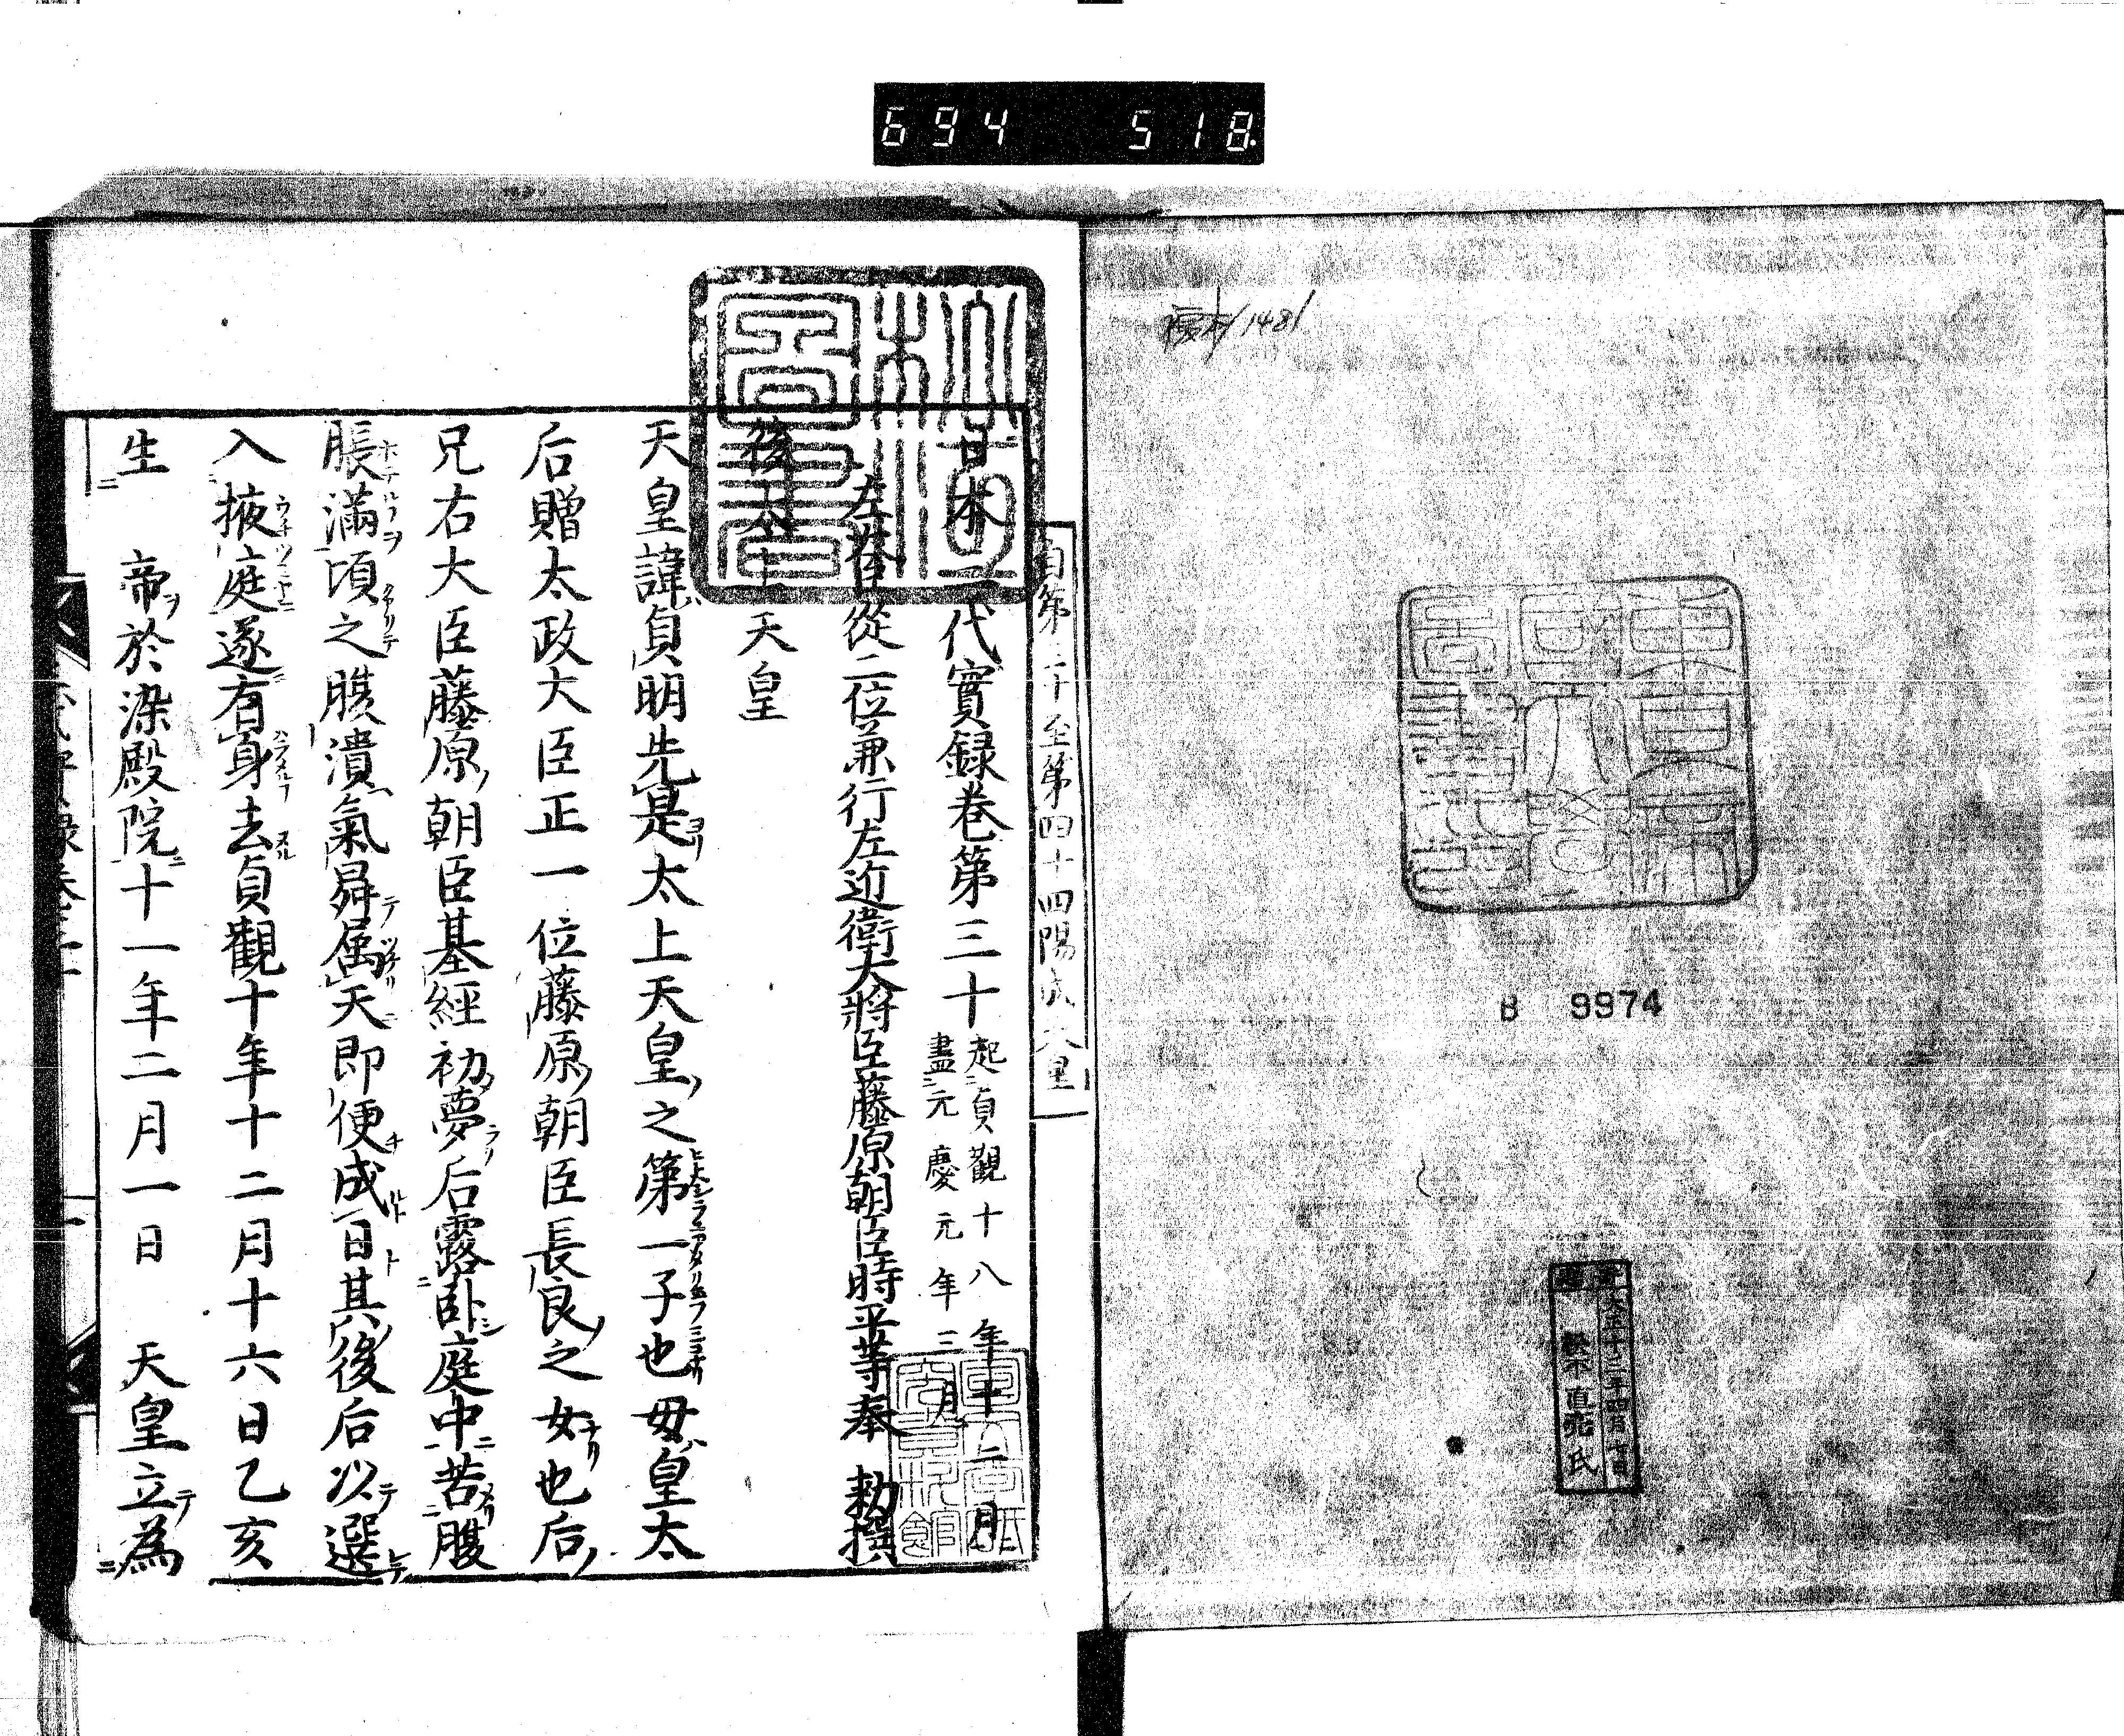 694 518
複本 1481
B 9974
大正十三年四月
松本直亮氏
自第三十至第四十四陽成天皇
日本三代實録巻第三十 起貞觀十八年十二月
盡元慶元年三月
左大臣從二位兼行左近衛大將臣藤原朝臣時平等奉 勅撰
後太上天皇
天皇諱貞明先是太上天皇之第一子也母皇太
后贈太政大臣正一位藤原朝臣長良之女也后
兄右大臣藤原朝臣基經初夢后露臥庭中苦腹
脹滿頃之腹潰氣昇属天即便成日其後后以選
入掖庭遂有身去貞觀十年十二月十六日乙亥
生 帝於染殿院十一年二月一日 天皇立為